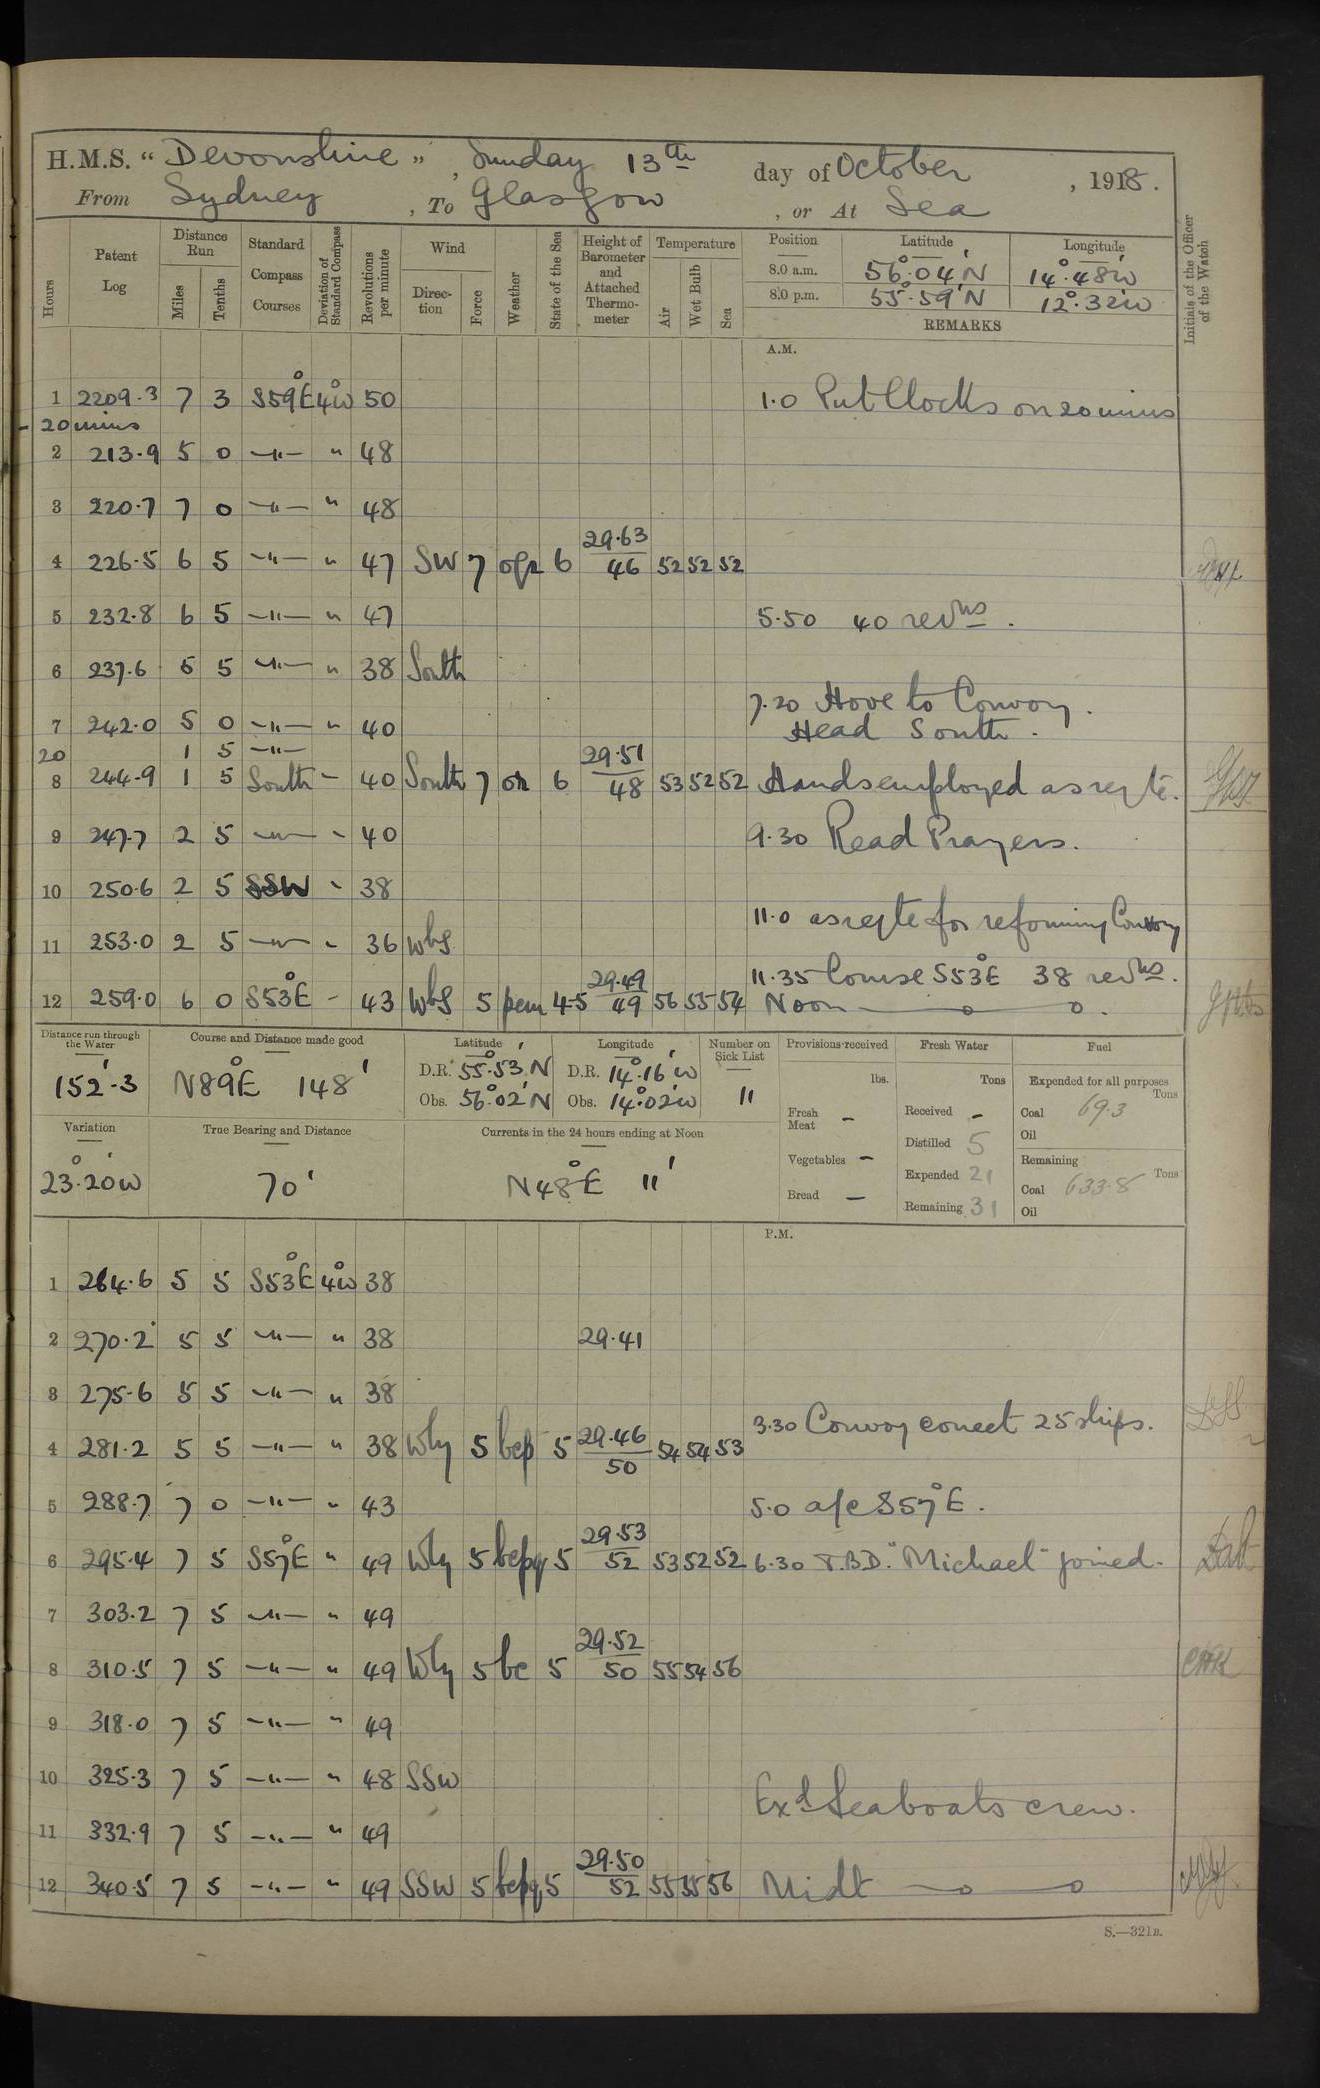 H.M.S. “ Devonshire „ , Sunday 13th day of October , 1918.
From Sydney , To Glasgow , or At Sea
Hours Patent Log Distance Run Miles Tenths Standard Compass Courses Deviation of Standard Compass Revolutions per minute Wind Direc-tion Force Weather State of the Sea Height of Barometer and Attached Thermo-meter Temperature Air Wet Bulb Sea Position Latitude Longitude Initials of the Officer of the Watch
8.0 a.m. 56°.04'N 14°.48'W
8.0 p.m. 55°.59'N 12°.32'W
REMARKS
A.M.
1 2209.3 7 3 S59°E 4°W 50 1.0 Put Clocks on 20 mins
20 mins
2 213.9 5 0 —"— " 48
3 220.7 7 0 —"— " 48
4 226.5 6 5 —"— " 47 SW 7 ogr 6 29.63/46 52 52 52
5 232.8 6 5 —"— " 47 5.50 40 revns.
6 237.6 5 5 —"— " 38 South
7.20 Hove to Convoy.
7 242.0 5 0 —"— " 40 Head South.
20 1 5 —"—
8 244.9 1 5 South – 40 South 7 or 6 29.51/48 53 52 52 Hands employed as reqte.
9 247.7 2 5 —"— - 40 9.30 Read Prayers.
10 250.6 2 5 SSW - 38
11.0 as reqte for reforming Convoy
11 253.0 2 5 —"— - 36 WbS
11.35 Course S53°E 38 revns.
12 259.0 6 0 S53°E - 43 WbS 5 pcm 4-5 29.49/49 56 55 54 Noon
Distance run through the Water Course and Distance made good Latitude Longitude Number on Sick List Provisions received Fresh Water Fuel
152'.3 N89°E 148' D.R. 55°.53'N D.R. 14°.16'W 11 lbs. Tons Expended for all purposes Tons
Obs. 56°.02'N Obs. 14°.02'W Fresh Meat – Received – Coal 69.3
Distilled 5 Oil
Variation True Bearing and Distance Currents in the 24 hours ending at Noon Vegetables – Expended 21 Remaining Tons
23°.20'W 70' N48°E 11' Bread – Remaining 31 Coal 633.8
Oil
P.M.
1 264.6 5 5 S53°E 4°W 38
2 270.2 5 5 —"— " 38 29.41
3 275.6 5 5 —"— " 38
3.30 Convoy correct 25 ships.
4 281.2 5 5 —"— " 38 Wly 5 bcp 5 29.46/50 54 54 53
5 288.7 7 0 —"— " 43 5.0 a/c S57°E.
6 295.4 7 5 S57°E " 49 Wly 5 bcpq 5 29.53/52 53 52 52 6.30 T.B.D. "Michael" joined.
7 303.2 7 5 —"— " 49
8 310.5 7 5 —"— " 49 Wly 5 bc 5 29.52/50 55 54 56 CHK
9 318.0 7 5 —"— " 49
10 325.3 7 5 —"— " 48 SSW
Exd Seaboats crew.
11 332.9 7 5 —"— " 49
12 340.5 7 5 —"— " 49 SSW 5 bcpq 5 29.50/52 55 55 56 Midt
S.—321B.